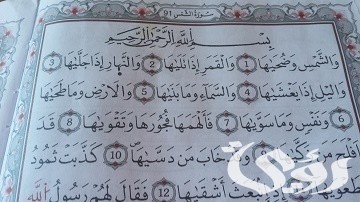 سُورَةُ الشَّمْسِ 91
بِسْمِ اللَّهِ الرَّحْمَٰنِ الرَّحِيمِ
وَالشَّمْسِ وَضُحَيٰهَا 1 وَالْقَمَرِ إِذَا تَلَيٰهَا 2 وَالنَّهَارِ إِذَا جَلَّيٰهَا 3
وَالَّيْلِ إِذَا يَغْشَيٰهَا 4 وَالسَّمَاءِ وَمَا بَنَيٰهَا 5 وَالْأَرْضِ وَمَا طَحَيٰهَا
6 وَنَفْسٍ وَمَا سَوَّيٰهَا 7 فَأَلْهَمَهَا فُجُورَهَا وَتَقْوَيٰهَا 8 قَدْ
أَفْلَحَ مَنْ زَكَّيٰهَا وَقَدْ خَابَ مَنْ دَسَّيٰهَا 10 كَذَّبَتْ ثَمُودُ
إِذِ انْبَعَثَ أَشْقَيٰهَا 12 فَقَالَ لَهُمْ رَسُولُ اللَّهِ